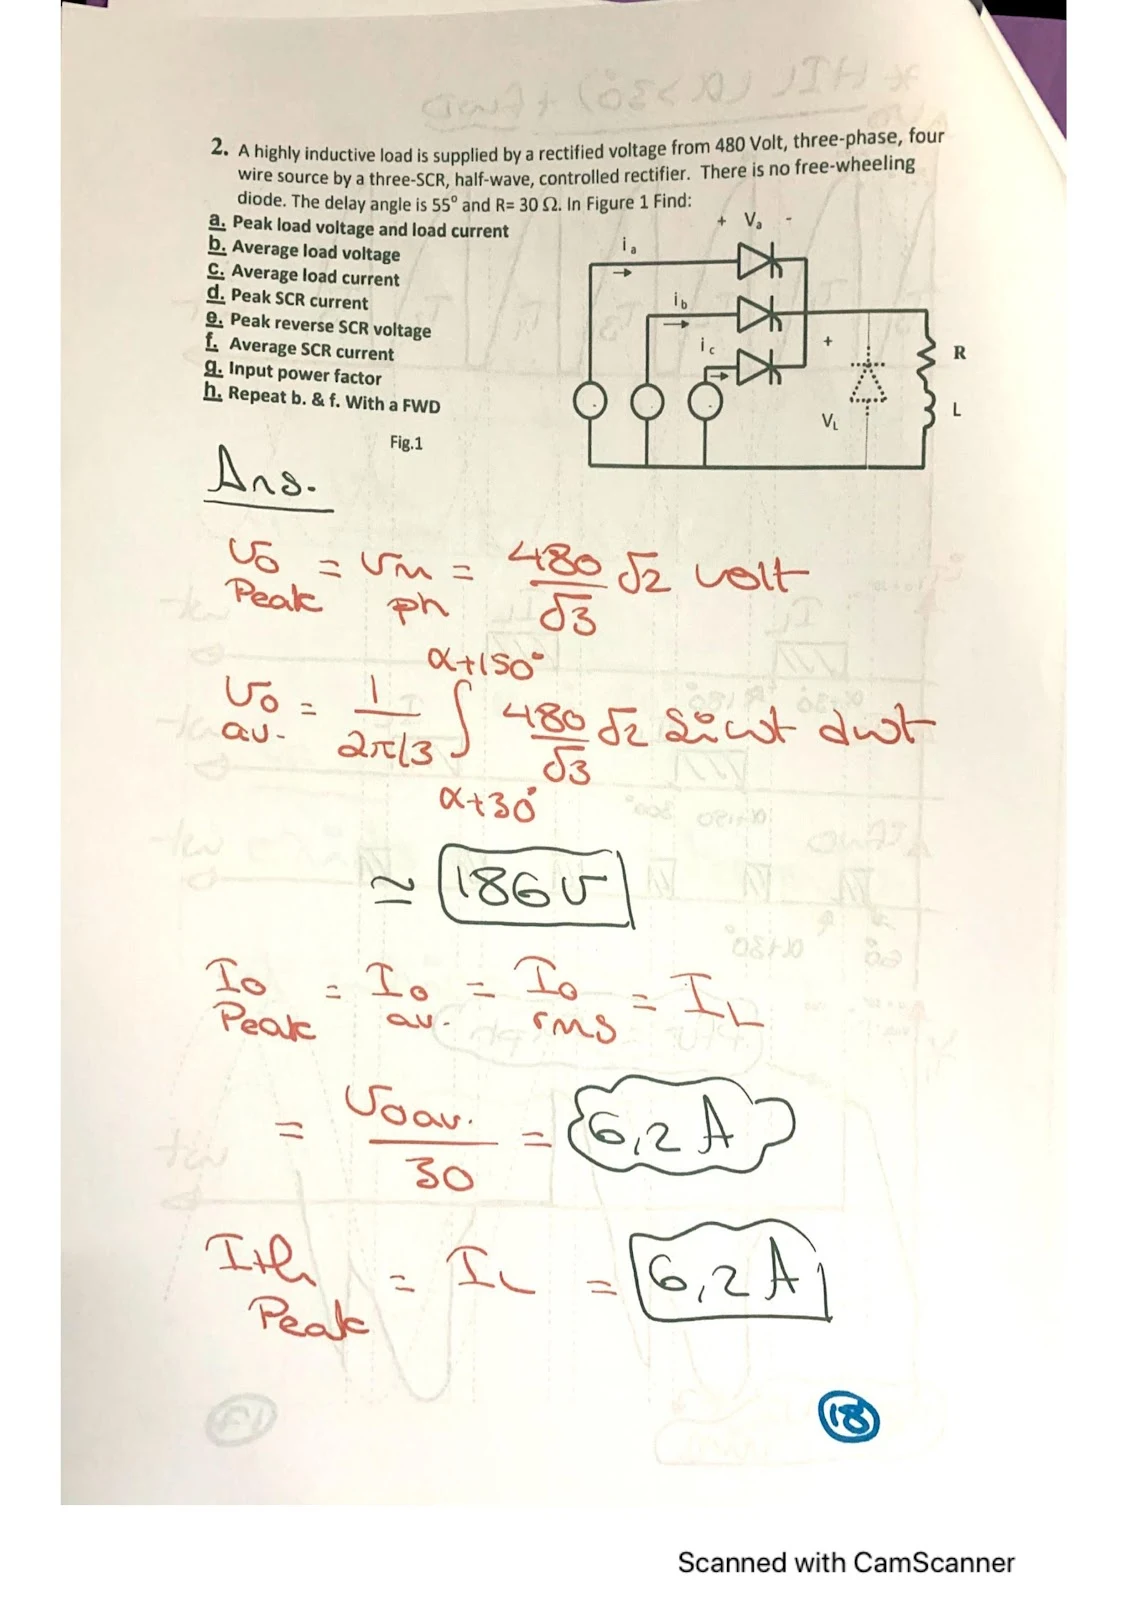 2. A highly inductive load is supplied by a rectified voltage from 480 Volt, three-phase, four
wire source by a three-SCR, half-wave, controlled rectifier. There is no free-wheeling
diode. The delay angle is 55° and R= 30 Ω. In Figure 1 Find:
a. Peak load voltage and load current
b. Average load voltage
c. Average load current
d. Peak SCR current
e. Peak reverse SCR voltage
f. Average SCR current
g. Input power factor
h. Repeat b. & f. With a FWD
Fig.1
+ Va -
ia
ib
ic
+
VL
R
L
Ans.
Vo Peak = Vm ph = 480/√3 √2 volt
Vo av. = 1/(2π/3) ∫ α+30° α+150° 480/√3 √2 Sin wt dwt
≃ 186 V
Io Peak = Io av. = Io rms = IL
= Vo av. / 30 = 6,2 A
Ith Peak = IL = 6,2 A
18
Scanned with CamScanner